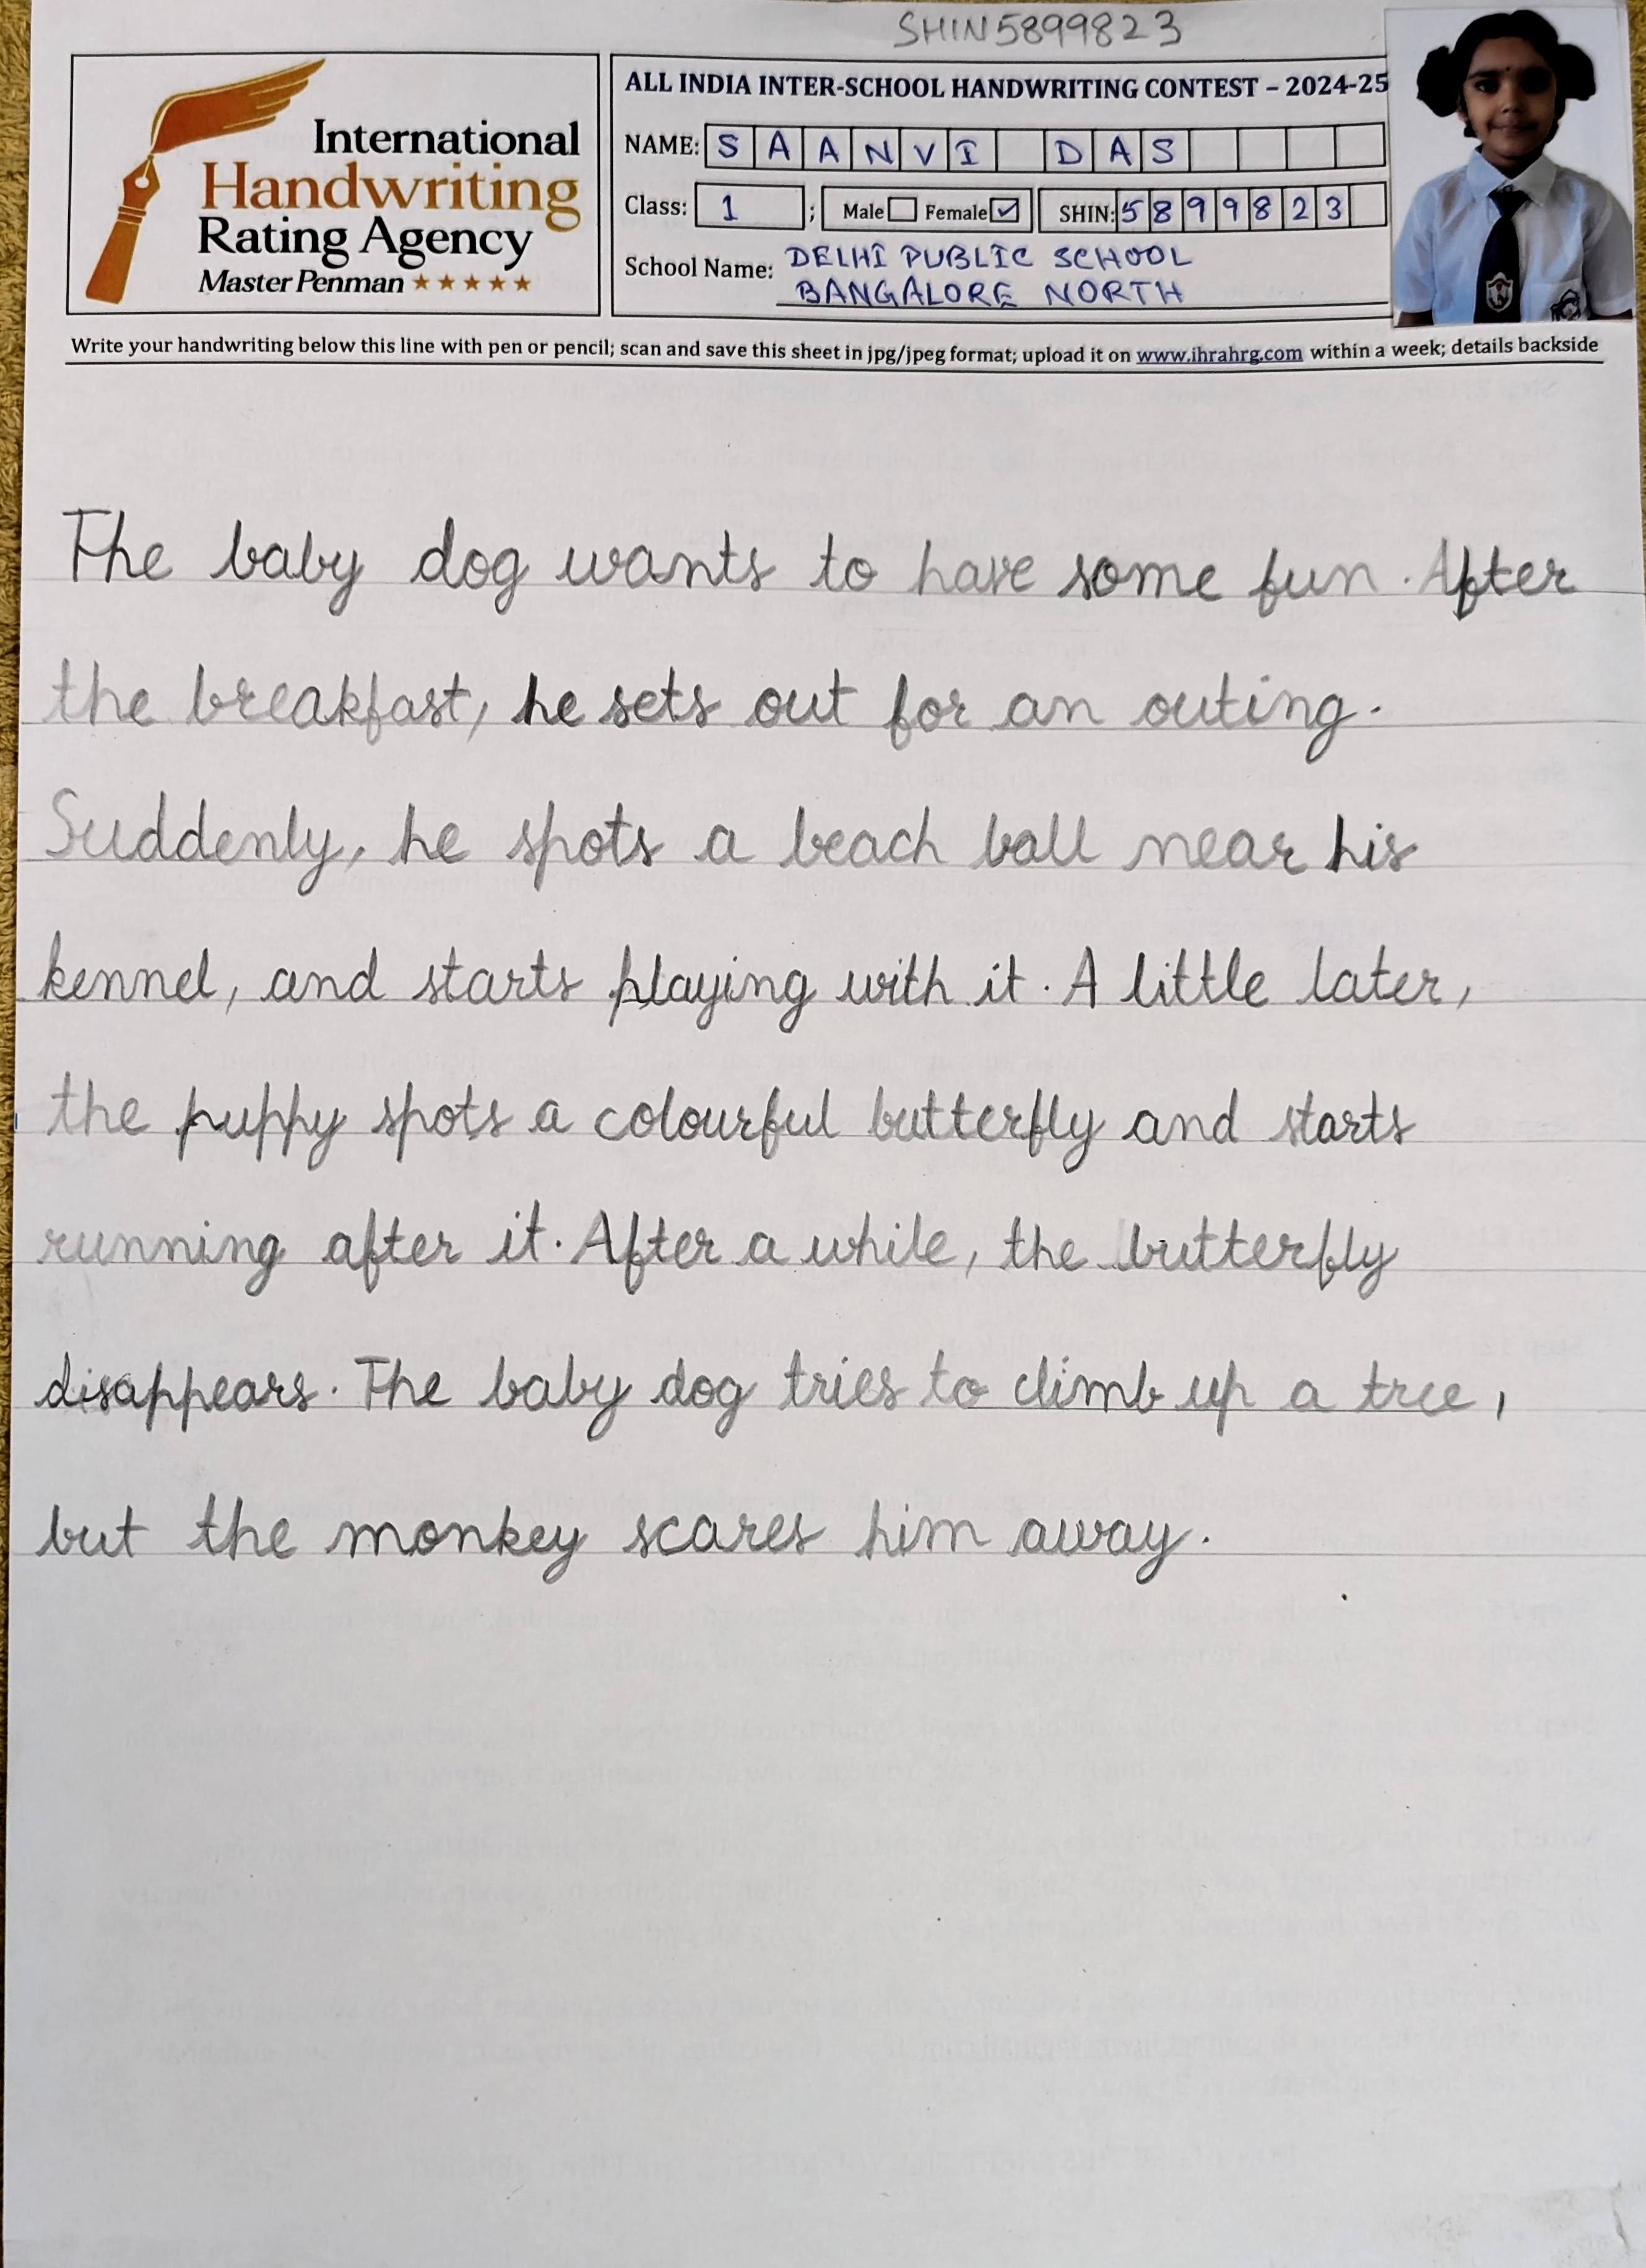 SHIN5899823
International
Handwriting
Rating Agency
Master Penman ★★★★★
ALL INDIA INTER-SCHOOL HANDWRITING CONTEST – 2024-25
NAME: SAANVI DAS
Class: 1 ; Male Female ✓ SHIN: 5899823
School Name: DELHI PUBLIC SCHOOL
BANGALORE NORTH
Write your handwriting below this line with pen or pencil; scan and save this sheet in jpg/jpeg format; upload it on www.ihrahrg.com within a week; details backside
The baby dog wants to have some fun. After
the breakfast, he sets out for an outing.
Suddenly, he spots a beach ball near his
kennel, and starts playing with it. A little later,
the puppy spots a colourful butterfly and starts
running after it. After a while, the butterfly
disappears. The baby dog tries to climb up a tree,
but the monkey scares him away.